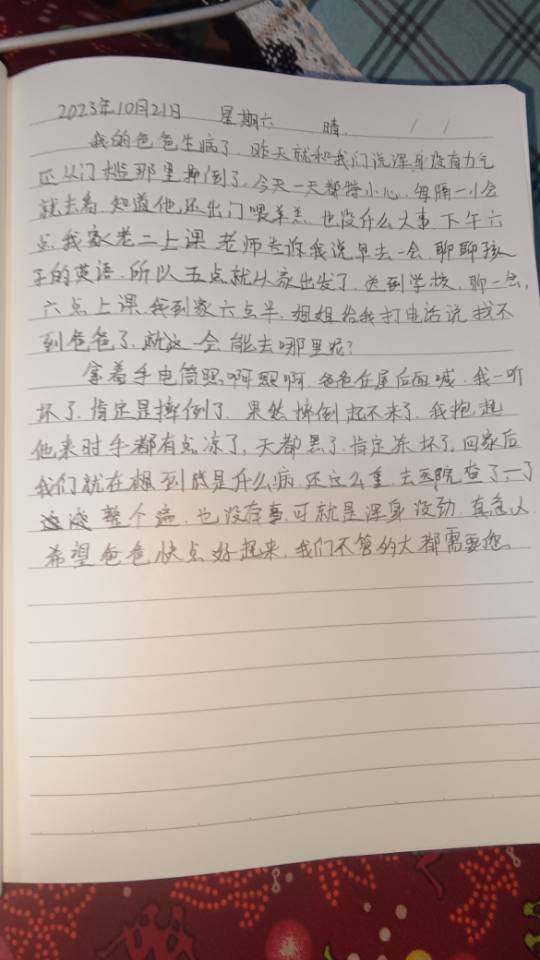 2023年10月21日 星期六 晴 / /
我的爸爸生病了.昨天就和我们说浑身没有力气
还从门槛那里摔倒了.今天一天都特小心.每隔一小会
就去看.知道他还出门喂羊羔.也没什么大事.下午六
点.我家老二上课.老师告诉我说早去一会.聊聊孩
子的英语.所以五点就从家出发了.送到学校.聊一会,
六点上课.我到家六点半.姐姐给我打电话说找不
到爸爸了.就这一会能去哪里呢?
拿着手电筒照啊照啊.爸爸在屋后面喊.我一听
坏了.肯定是摔倒了.果然摔倒起不来了.我抱起
他来时手都有点凉了,天都黑了.肯定冻坏了.回家后
我们就在想到底是什么病.还这么重.去医院查了一
整个遍.也没存事.可就是浑身没劲.真急人
希望爸爸快点好起来.我们不管多大都需要您.